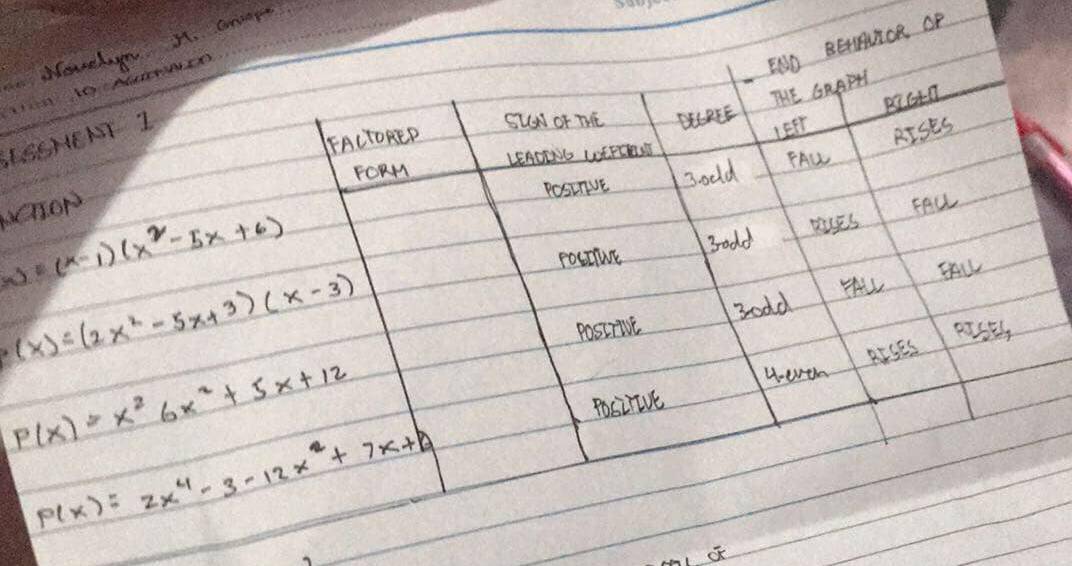 Novelyn M.
10
SESSMENT 1
NCTION
FACTORED FORM
SIGN OF THE LEADING COEFFICIENT
DEGREE
- END BEHAVIOR OF THE GRAPH
LEFT
RIGHT
x) = (x-1)(x² - 5x + 6)
POSITIVE
3-odd
FALL
RISES
P(x) = (2x² - 5x + 3)(x - 3)
POSITIVE
3-odd
RISES
FALL
P(x) = x³ 6x² + 5x + 12
POSITIVE
3-odd
FALL
FALL
P(x) = 2x⁴ - 3 - 12x² + 7x +
POSITIVE
4-even
RISES
RISES
OF